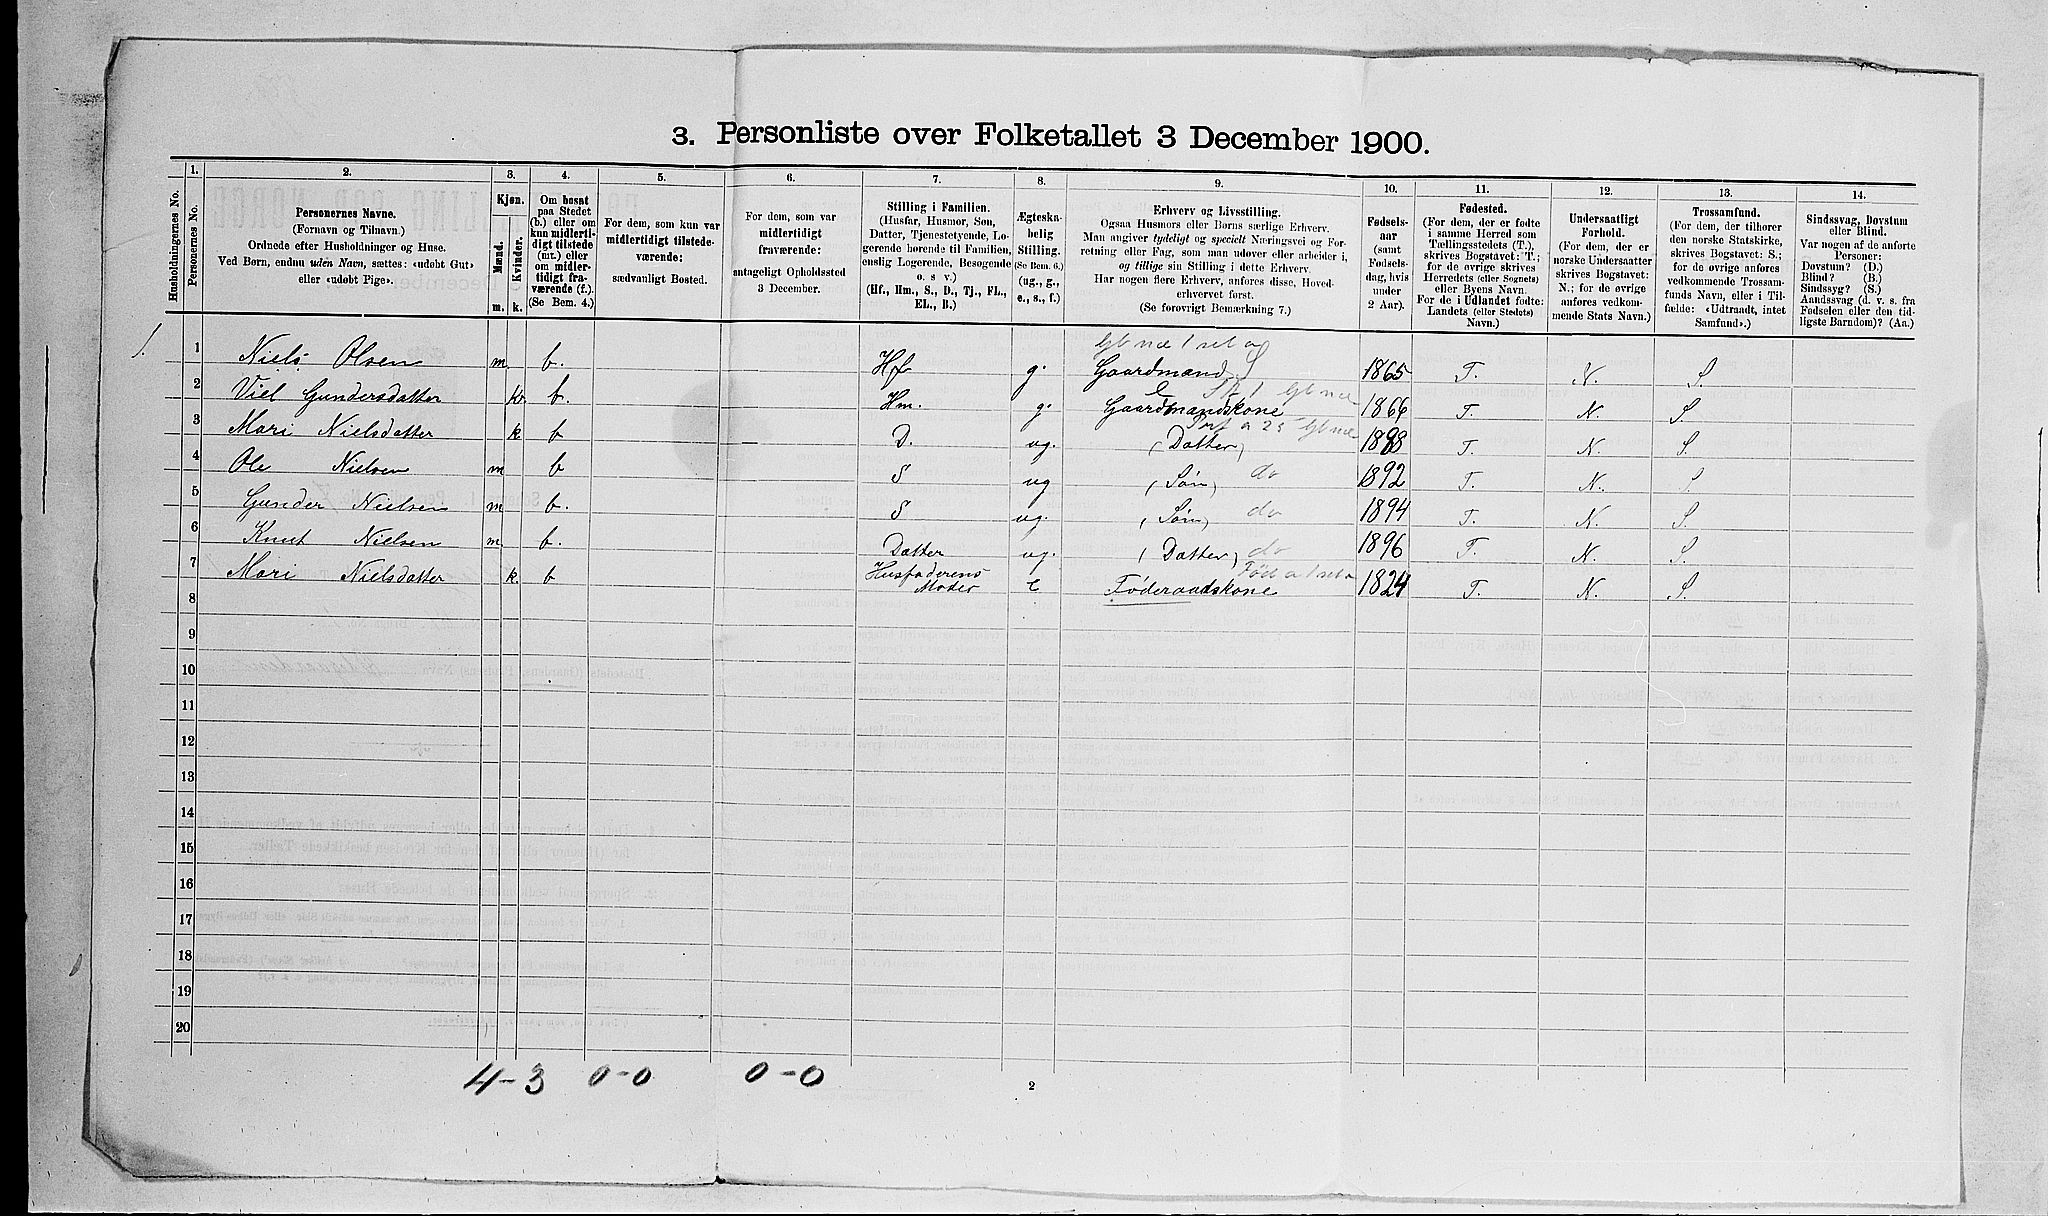 3. Personliste over Folketallet 3 December 1900.
Husholdningernes No.
1. Personernes No.
2. Personernes Navne.
(Fornavn og Tilnavn.)
Ordnede efter Husholdninger og Huse.
Ved Børn, endnu uden Navn, sættes: «udøbt Gut»
eller «udøbt Pige».
3. Kjøn.
Mænd. m.
Kvinder. k.
4. Om bosat
paa Stedet
(b.) eller om
kun midlerti-
digt tilstede
(mt.) eller
om midler-
tidigt fra-
værende (f.).
(Se Bem. 4.)
5. For dem, som kun var
midlertidigt tilstede-
værende:
sædvanligt Bosted.
6. For dem, som var
midlertidigt
fraværende:
antageligt Opholdssted
3 December.
7. Stilling i Familien.
(Husfar, Husmor, Søn,
Datter, Tjenestetyende, Lo-
gerende hørende til Familien,
enslig Logerende, Besøgende
o. s v.)
(Hf., Hm., S., D., Tj., FL.,
EL., B.)
8. Ægteska-
belig
Stilling.
(Se Bem. 6.)
(ug., g.,
e., s., f.)
9. Erhverv og Livsstilling.
Ogsaa Husmors eller Børns særlige Erhverv.
Man angiver tydeligt og specielt Næringsvei og For-
retning eller Fag, som man udøver eller arbeider i,
og tillige sin Stilling i dette Erhverv.
Har nogen flere Erhverv, anføres disse, Hoved-
erhvervet først.
(Se forøvrigt Bemærkning 7.)
10. Fødsels-
aar
(samt
Fødsels-
dag, hvis
under
2 Aar).
11. Fødested.
(For dem, der er fødte
i samme Herred som
Tællingsstedets (T.),
skrives Bogstavet: T.;
for de øvrige skrives
Herredets (eller Sognets)
eller Byens Navn.
For de i Udlandet fødte:
Landets (eller Stedets)
Navn.)
12. Undersaatligt
Forhold.
(For dem, der er
norske Undersaatter
skrives Bogstavet:
N.; for de øvrige
anføres vedkom-
mende Stats Navn.)
13. Trossamfund.
(For dem, der tilhører
den norske Statskirke,
skrives Bogstavet: S.;
for de øvrige anføres
vedkommende Trossam-
funds Navn, eller i Til-
fælde: «Udtraadt, intet
Samfund».)
14. Sindssvag, Døvstum
eller Blind.
Var nogen af de anførte
Personer:
Døvstum? (D.)
Blind? (B.)
Sindssyg? (S.)
Aandssvag (d. v. s. fra
Fødselen eller den tid-
ligste Barndom)? (Aa.)
1. 1 Niels Olsen m. b. Hf g. Gaardmand S 1865 T. N. S.
2 Viel Gundersdatter k. b. Hm. g. Gaardmandskone 1866 T. N. S.
3 Mari Nielsdatter k b D. ug. (Datter) 1888 T. N. S.
4 Ole Nielsen m b S ug (Søn) do 1892 T. N. S.
5 Gunder Nielsen m b. S ug. (Søn) do 1894 T. N. S.
6 Knut Nielsen m b. Datter ug. (Datter) do 1896 T. N. S.
7 Mari Nielsdatter k. b Husfaderens
Moder e Føderaadskone 1824 T. N. S.
8
9
10
11
12
13
14
15
16
17
18
19
20
4-3 0-0 0-0
2